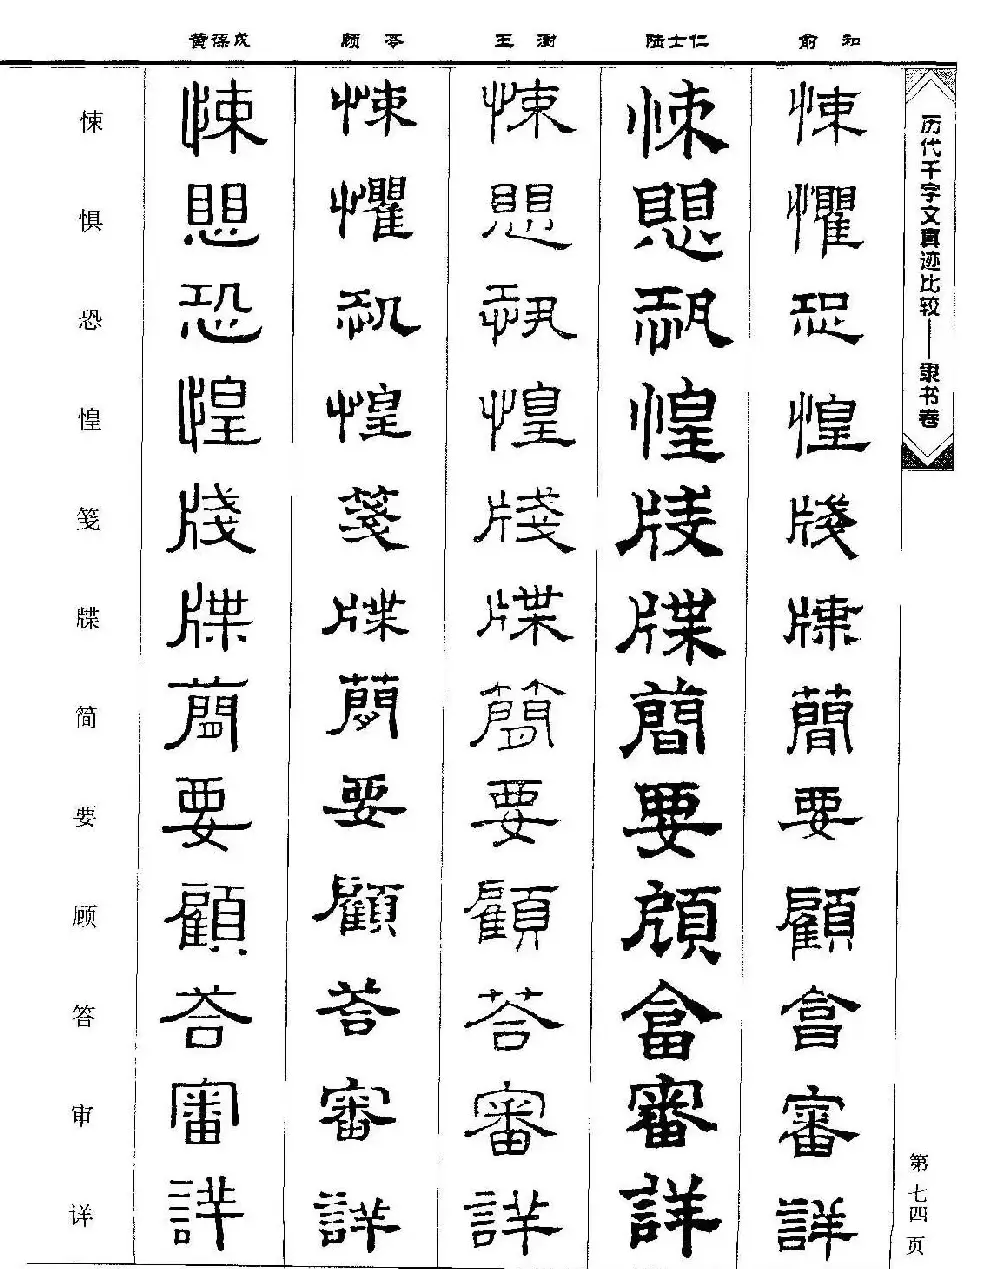 历代千字文真迹比较——隶书卷
第七四页
俞和
悚懼恐惶牋牒簡要顧畣審詳
陆士仁
悚愳恐惶牋牒簡要顧畣審詳
王澍
悚愳恐惶牋牒簡要顧荅審詳
顾苓
悚懼恐惶箋牒簡要顧荅審詳
黄葆戉
悚愳恐惶牋牒簡要顧荅審詳
悚惧恐惶笺牒简要顾答审详